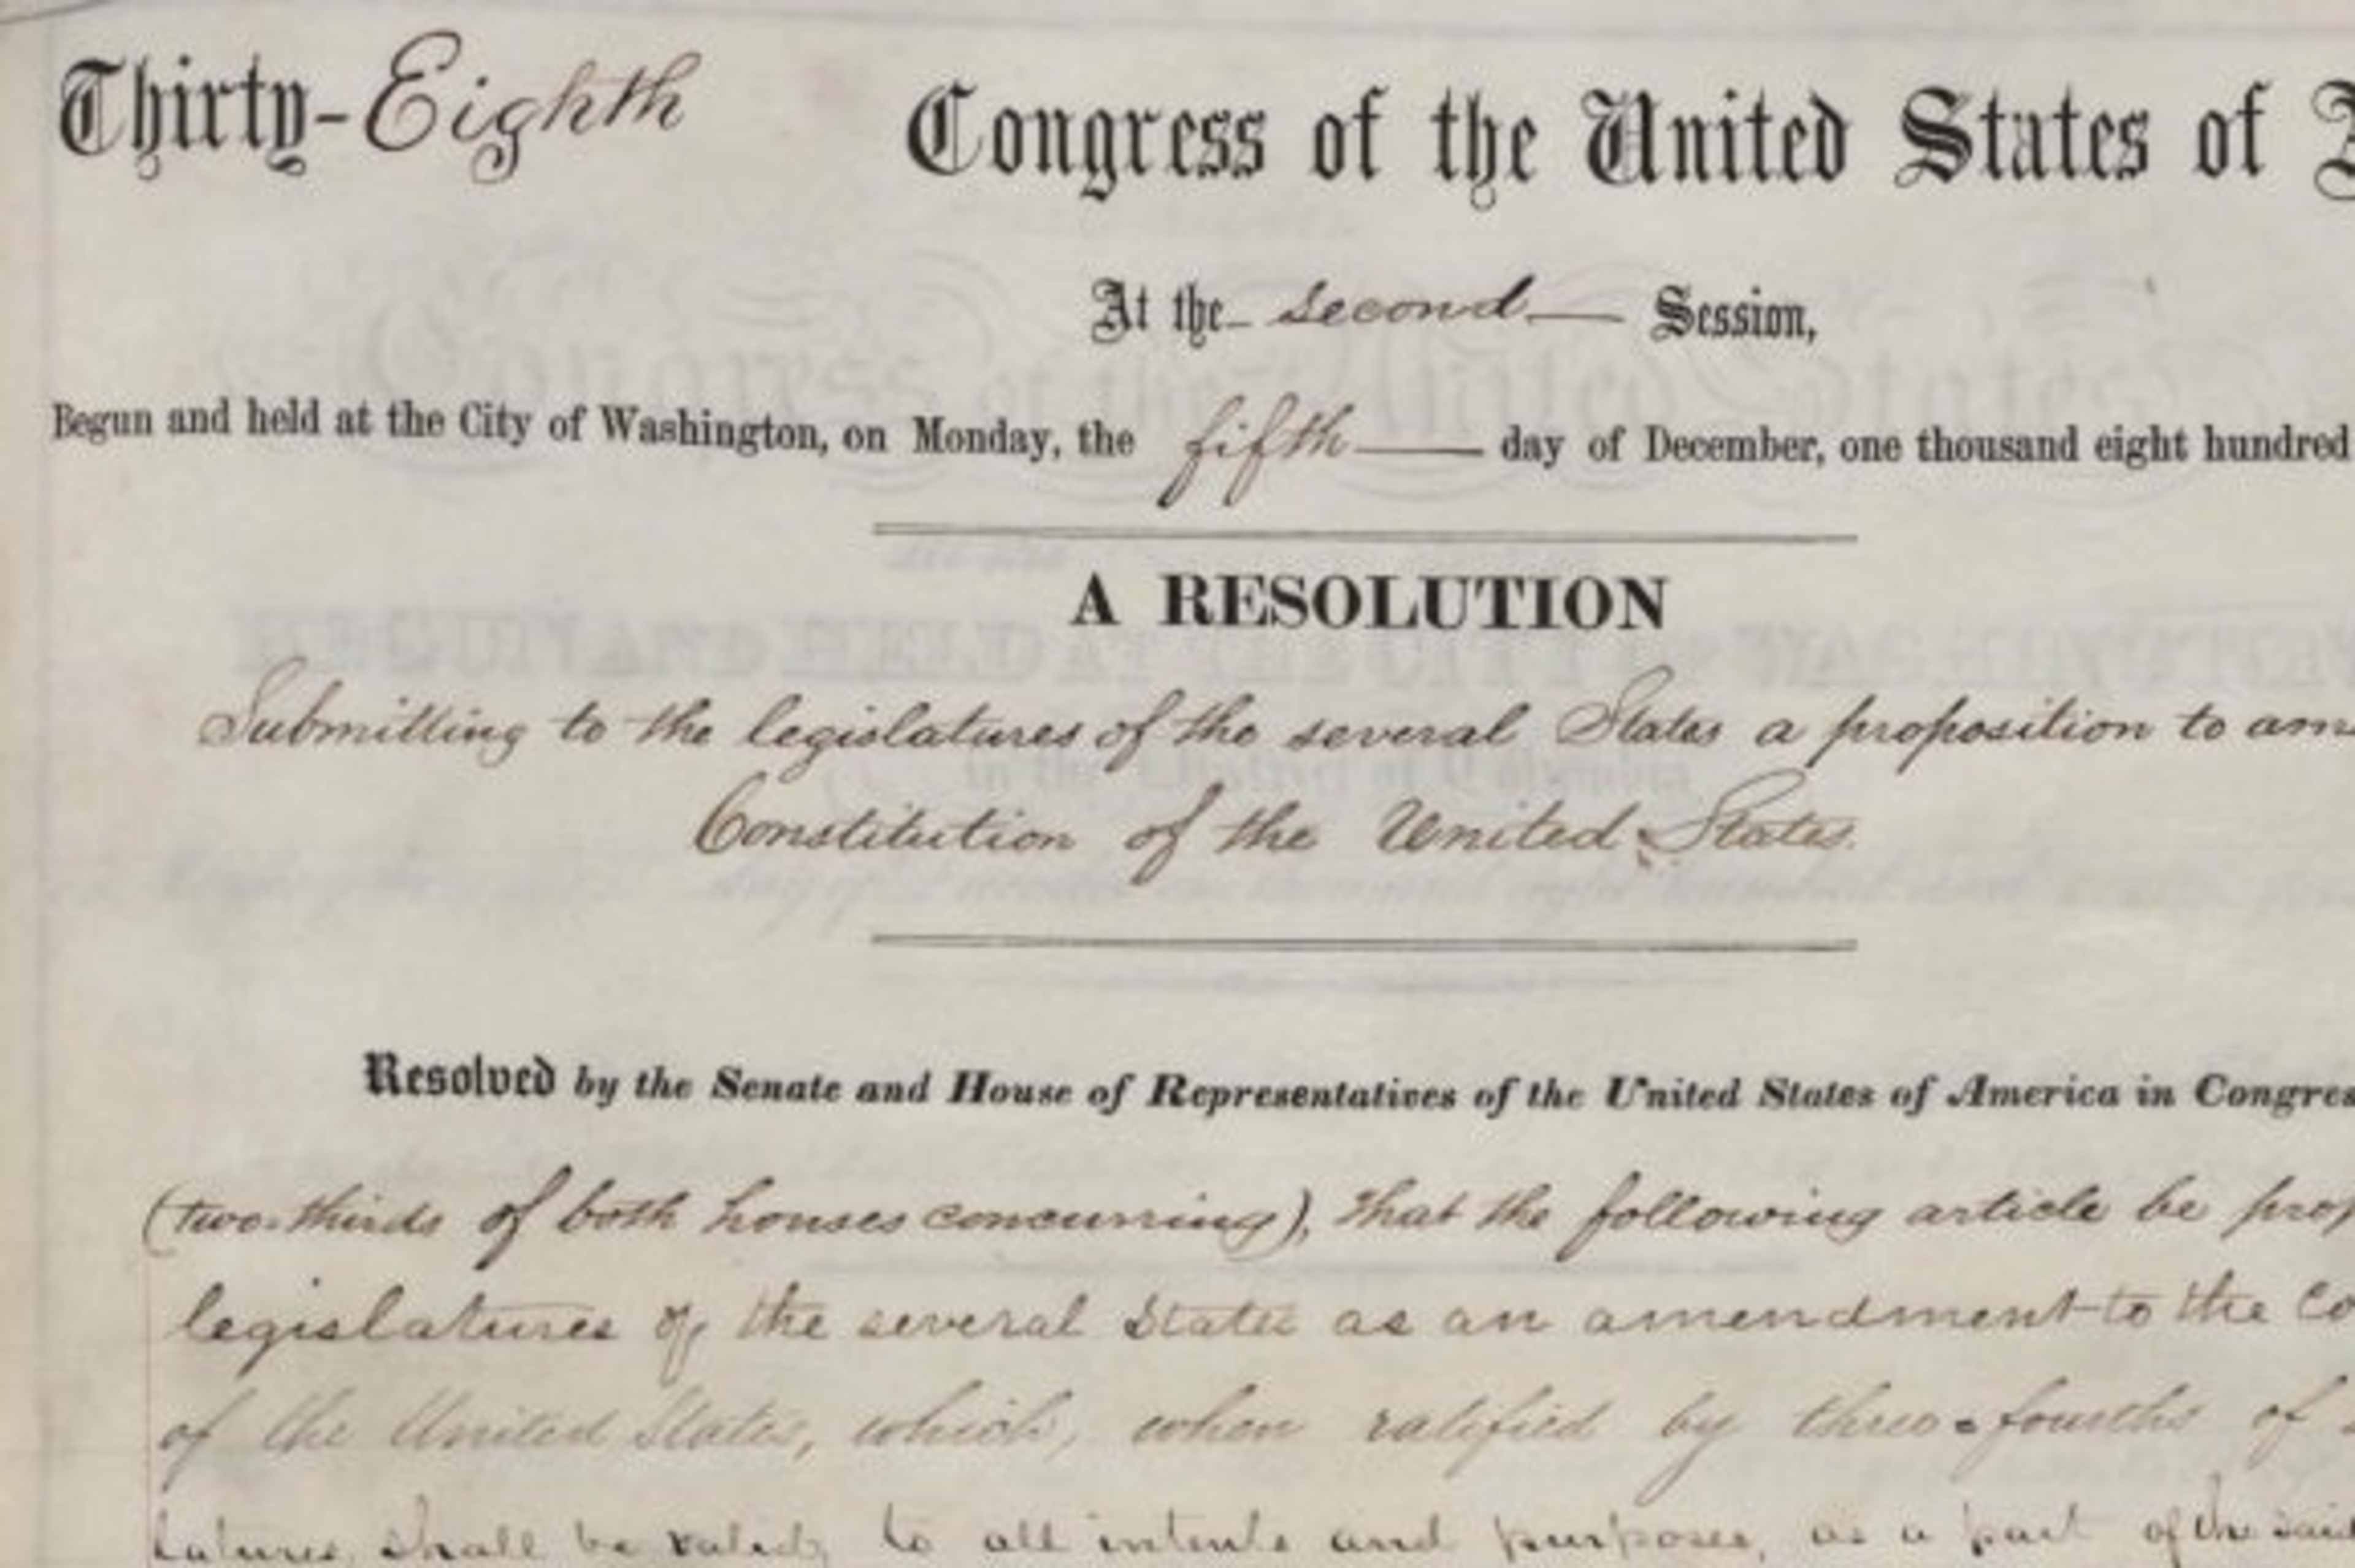 Thirty-Eighth Congress of the United States of
At the second Session,
Begun and held at the City of Washington, on Monday, the fifth day of December, one thousand eight hundred
A RESOLUTION
Submitting to the legislatures of the several States a proposition to am
Constitution of the United States.
Resolved by the Senate and House of Representatives of the United States of America in Congres
(two-thirds of both houses concurring), that the following article be prop
legislatures of the several States as an amendment to the Co
of the United States, which, when ratified by three-fourths of
latures shall be valid, to all intents and purposes, as a part of the said